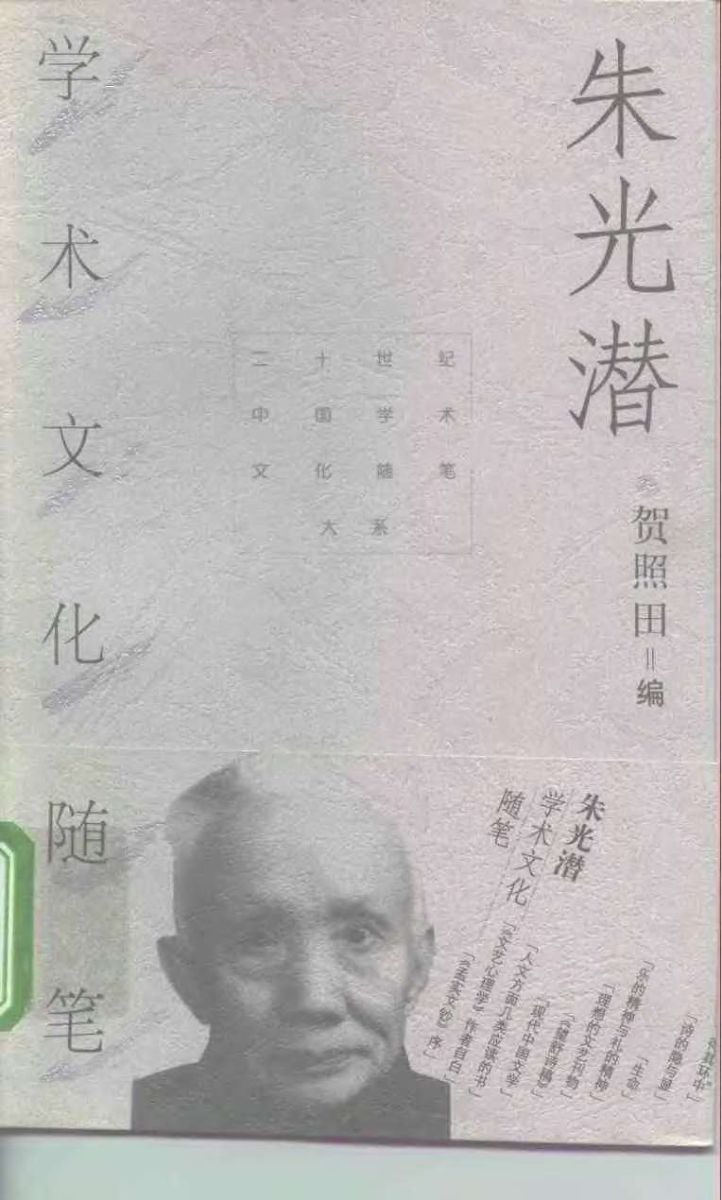 朱光潜
贺照田=编
学术文化随笔
二十世纪
中国学术
文化随笔
大系
朱光潜
学术文化
随笔
「诗的隐与显」
「生命」
「乐的精神与礼的精神」
「理想的文艺刊物」
「现代中国文学」
「人文方面几类应读的书」
「《文艺心理学》作者自白」
「《孟实文钞》序」